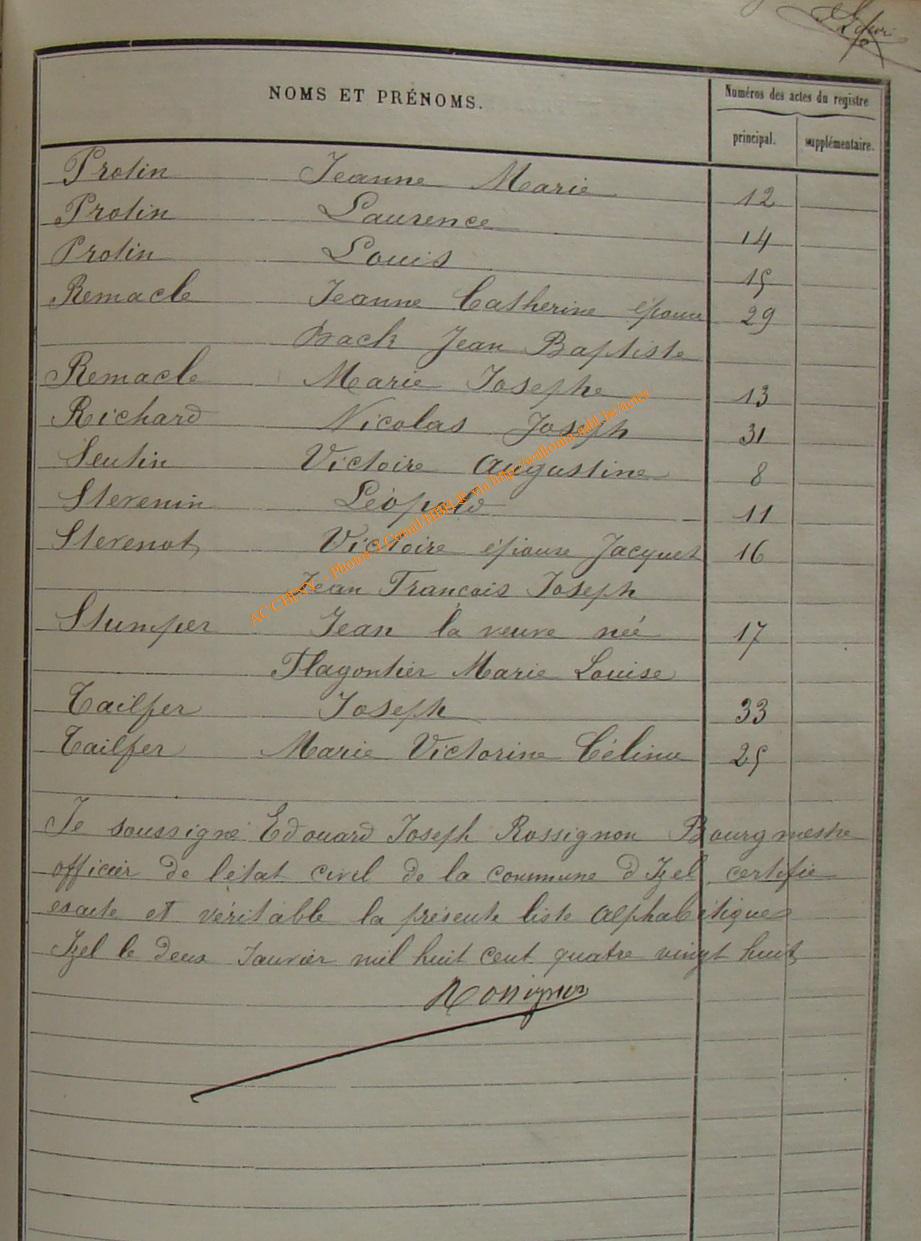 NOMS ET PRÉNOMS.
Numéros des actes du registre
principal. supplémentaire.
Protin Jeanne Marie 12
Protin Laurence 14
Protin Louis 15
Remacle Jeanne Catherine épouse 29
Jean Baptiste
Remacle Marie Josephe 13
Richard Nicolas Joseph 31
Seutin Victoire Augustine 8
Stevenin Léopold 11
Stevenot Victoire épouse Jacquet 16
Jean François Joseph
Stumper Jean la veuve née 17
Flagontier Marie Louise
Tailfer Joseph 33
Tailfer Marie Victorine Céline 25
Je soussigné Edouard Joseph Rossignon Bourgmestre
officier de l'état civil de la commune d'Izel certifie
exacte et véritable la présente liste alphabétique
Izel le deux Janvier mil huit cent quatre vingt huit
Rossignon